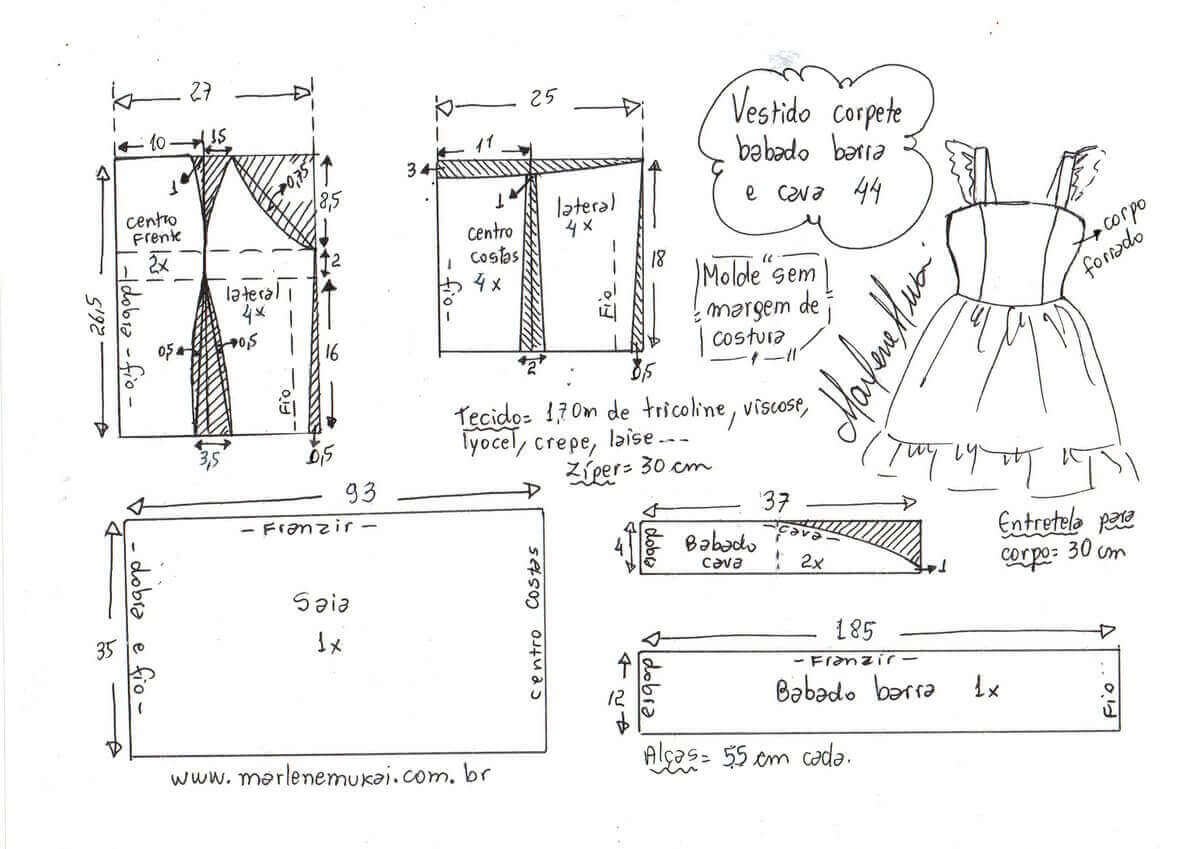 27
10
3,5
1
0,75
8,5
centro
Frente
2x
2
- dobra - fio -
lateral
4x
26,5
0,5
0,5
Fio
16
3,5
0,5
25
11
3
1
centro
costas
4x
- fio -
lateral
4x
Fio
18
2
0,5
Vestido corpete
babado barra
e cava 44
Molde sem
margem de
costura
Marlene Mukai
corpo
forrado
Tecido= 1,70m de tricoline, viscose,
lyocel, crepe, laise---
Zíper= 30 cm
93
- Franzir -
- dobra e fio -
Saia
1x
centro costas
35
www.marlenemukai.com.br
37
4
dobra
Babado
cava
- cava -
2x
1
Entretela para
corpo= 30 cm
185
12
dobra
- Franzir -
Babado barra 1x
Fio
Alças= 55 cm cada.